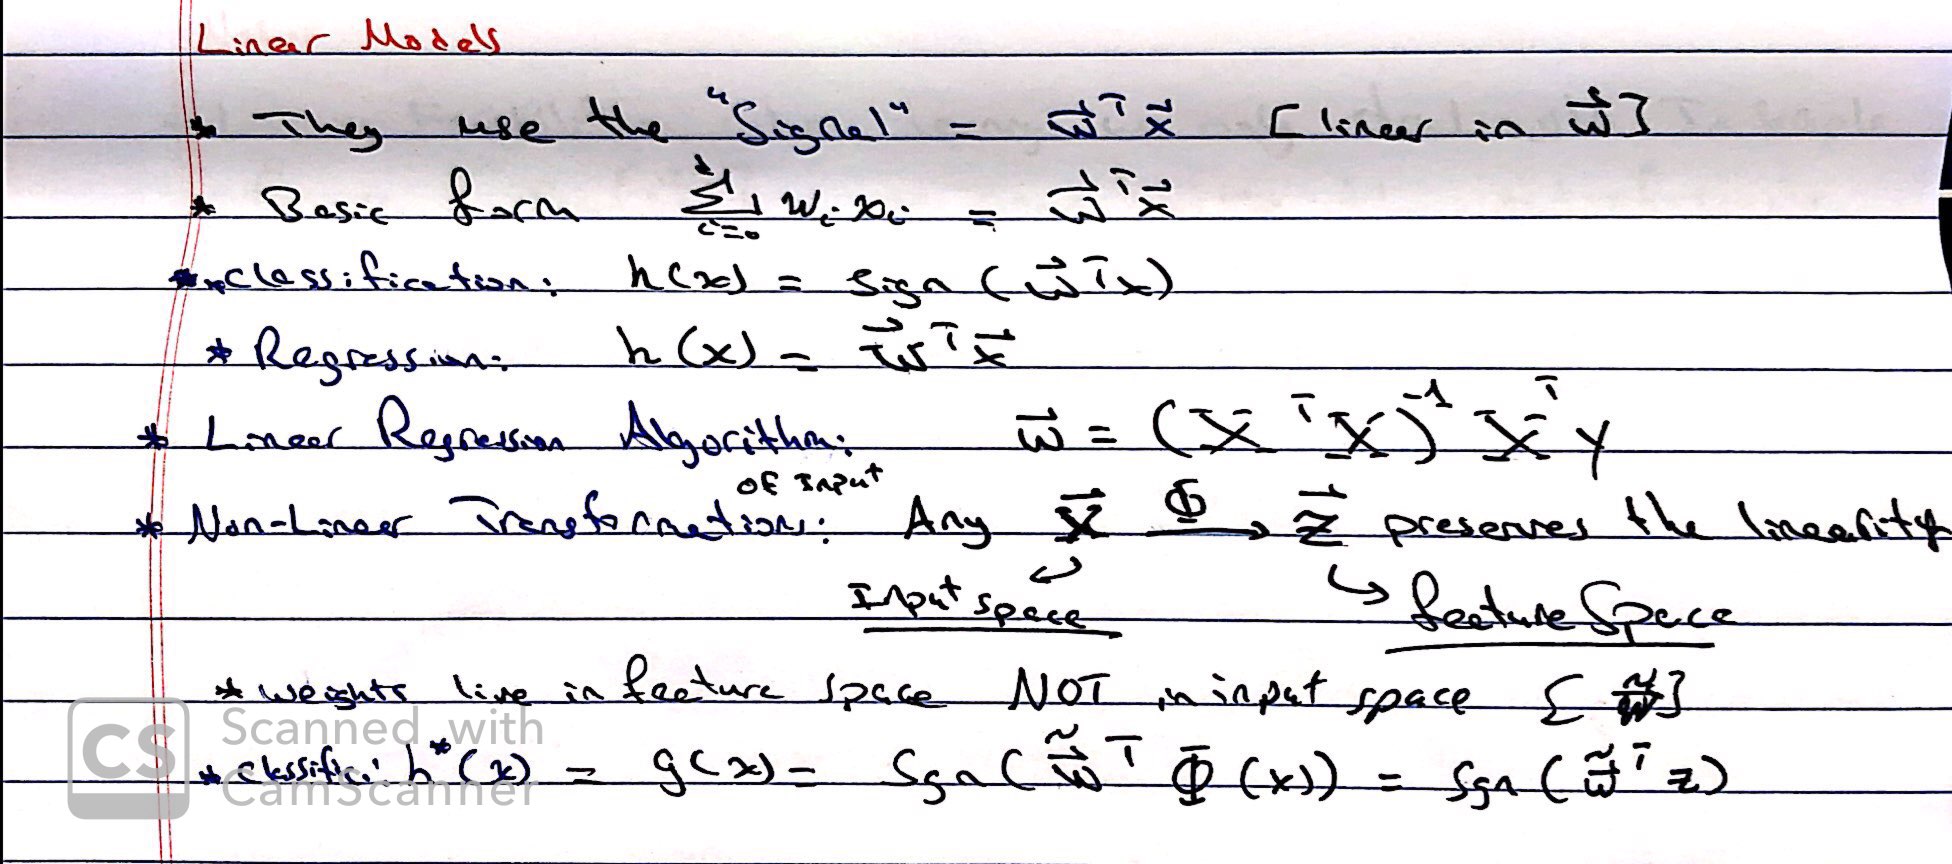 Linear Models
* They use the "Signal" = w⃗ᵀ x⃗ [linear in w⃗]
* Basic form Σ_{i=0}^{d} wᵢ xᵢ = w⃗ᵀ x⃗
* classification: h(x) = sign (w⃗ᵀx)
* Regression: h(x) = w⃗ᵀ x⃗
* Linear Regression Algorithm: w⃗ = (XᵀX)⁻¹ Xᵀ y
of Input
* Non-Linear Transformations: Any x⃗ —Φ→ z⃗ preserves the linearity
Input space ↪ feature Space
* weights live in feature space NOT in input space [w̃]
Scanned with
* classific: h*(x) = g(x) = Sgn(w̃⃗ᵀ Φ(x)) = Sgn(w̃⃗ᵀ z)
CS CamScanner